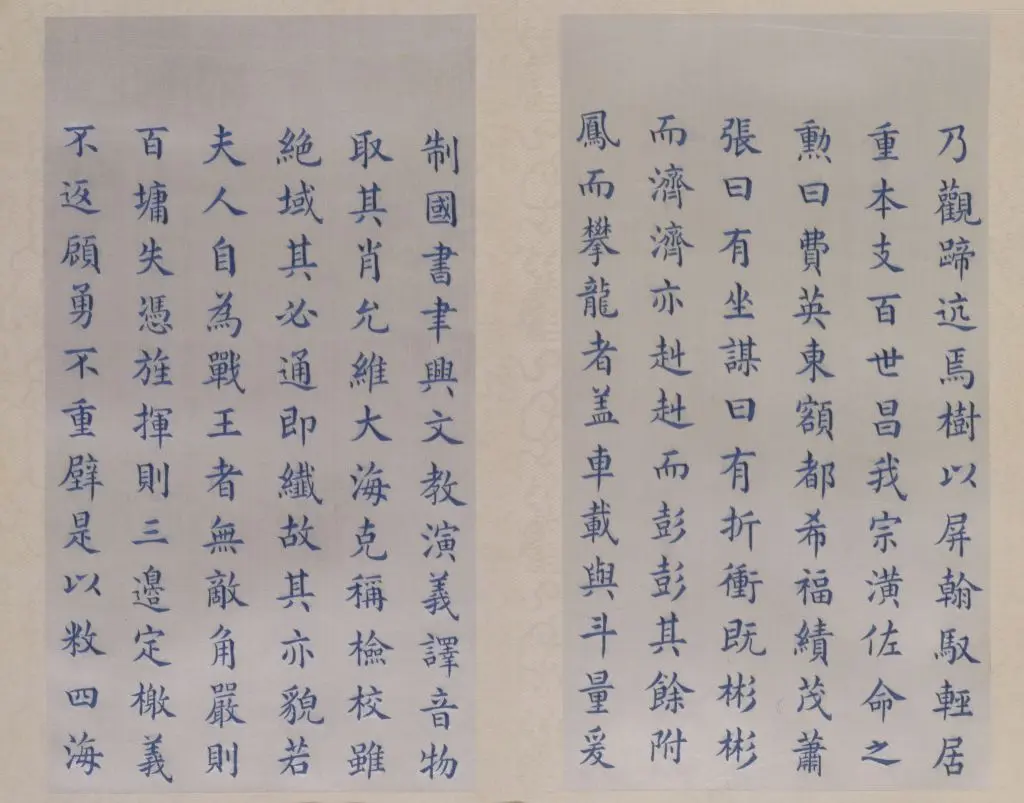 乃觀蹄迒焉樹以屏翰馭輕居
重本支百世昌我宗潢佐命之
勲曰費英東額都希福績茂蕭
張曰有坐謀曰有折衝既彬彬
而濟濟亦赳赳而彭彭其餘附
鳳而攀龍者盖車載與斗量爰
制國書聿興文教演義譯音物
取其肖允維大海克稱檢校雖
絶域其必通即纖故其亦貌若
夫人自為戰王者無敵角嚴則
百墉失憑旌揮則三邊定檄義
不返顧勇不重壁是以敉四海